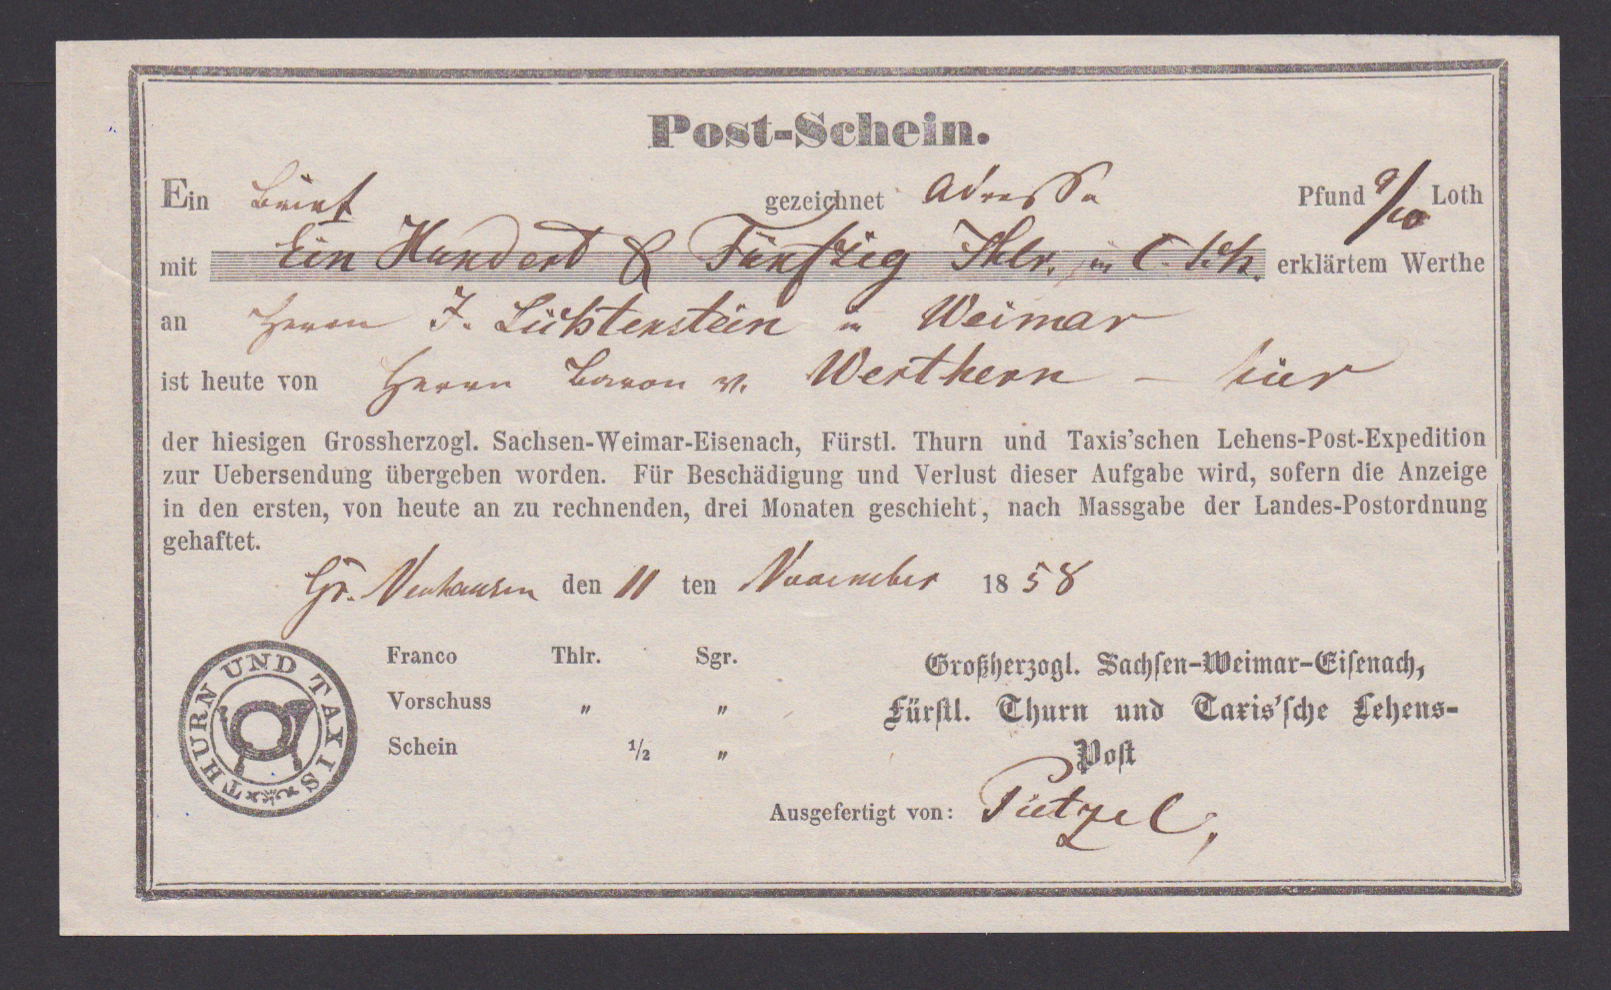 Post-Schein.
Ein Brief gezeichnet Adresse Pfund 9/10 Loth
mit Ein Hundert & Fünfzig Thlr. in erklärtem Werthe
an Herrn J. Lichtenstein in Weimar
ist heute von Herrn Baron v. Werthern — hier
der hiesigen Grossherzogl. Sachsen-Weimar-Eisenach, Fürstl. Thurn und Taxis'schen Lehens-Post-Expedition
zur Uebersendung übergeben worden. Für Beschädigung und Verlust dieser Aufgabe wird, sofern die Anzeige
in den ersten, von heute an zu rechnenden, drei Monaten geschieht, nach Massgabe der Landes-Postordnung
gehaftet.
Gr. Neuhausen den 11 ten November 1858
THURN UND TAXIS
Franco Thlr. Sgr.
Vorschuss " "
Schein 1/2 "
Großherzogl. Sachsen-Weimar-Eisenach,
Fürstl. Thurn und Taxis'sche Lehens-
Post
Ausgefertigt von: